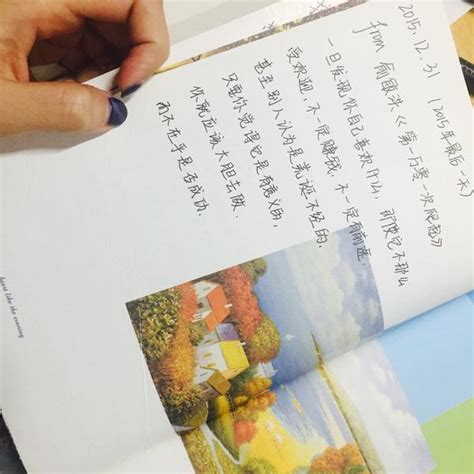 2015.12.31 (2015年最后一天)
from 俞敏洪《第一万零一次
一旦发现你自己喜欢什么，即使它不那么
受欢迎，不一定赚钱，不一定有前途，
甚至别人认为是荒诞不经的，
只要你觉得它是有意义的，
你就应该大胆去做，
而不在乎是否成功．
like the evening